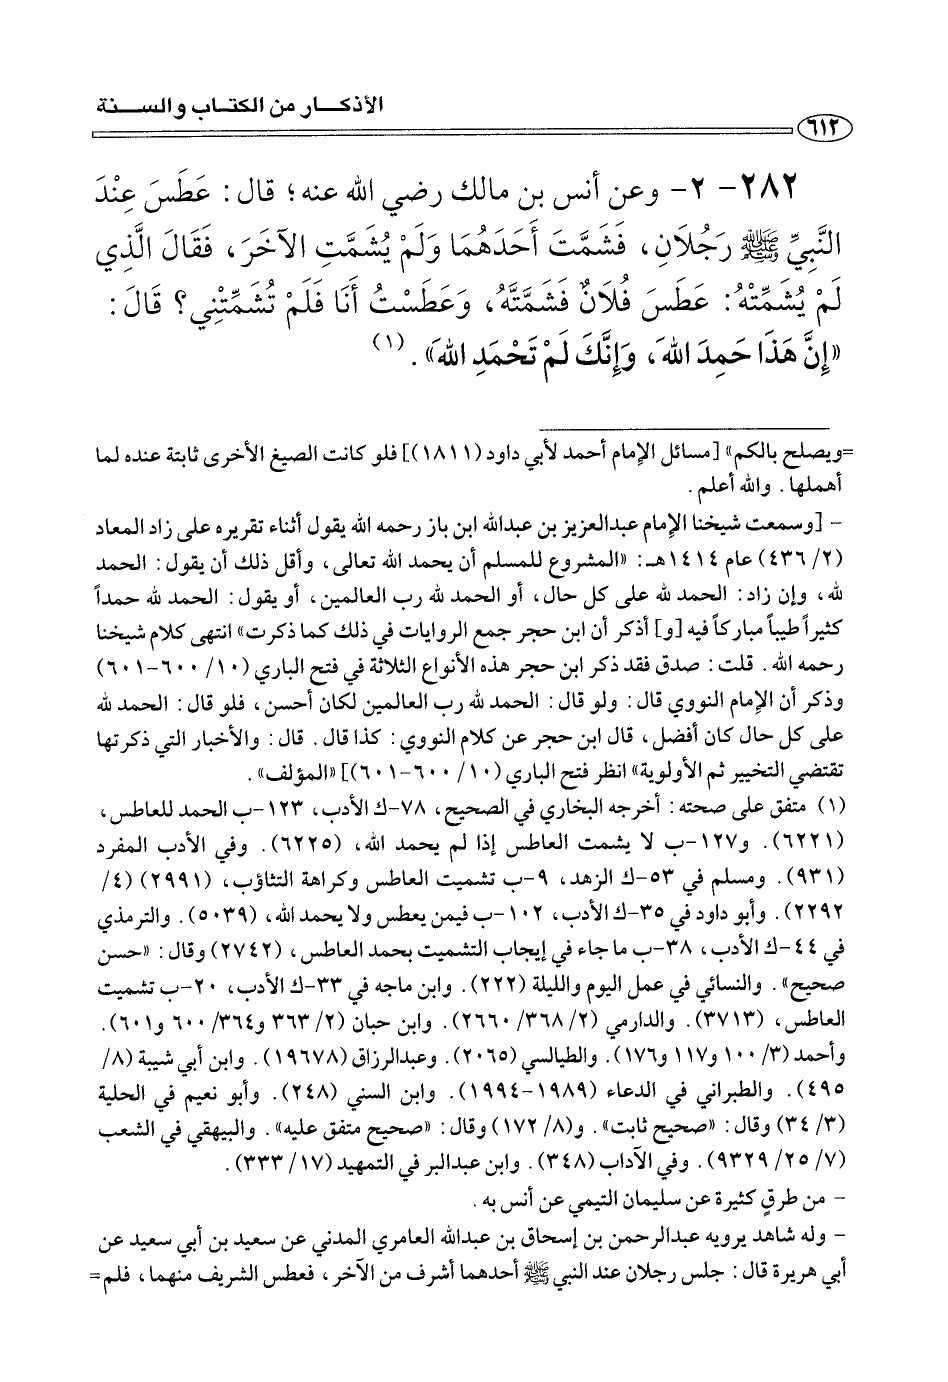 الأذكـــار من الكتــاب والســـنة
٦١٢
٢٨٢- ٢- وعن أنس بن مالك رضي الله عنه؛ قال: عَطَسَ عِنْدَ
النَّبِيِّ ﷺ رَجُلَانِ، فَشَمَّتَ أَحَدَهُمَا وَلَمْ يُشَمِّتِ الآخَرَ، فَقَالَ الَّذِي
لَمْ يُشَمِّتْهُ: عَطَسَ فُلَانٌ فَشَمَّتَّهُ، وَعَطَسْتُ أَنَا فَلَمْ تُشَمِّتْنِي؟ قَالَ:
«إِنَّ هَذَا حَمِدَ اللهَ، وَإِنَّكَ لَمْ تَحْمَدِ اللهَ». (١)
=ويصلح بالكم» [مسائل الإمام أحمد لأبي داود (١٨١١)] فلو كانت الصيغ الأخرى ثابتة عنده لما
أهملها. والله أعلم.
- [وسمعت شيخنا الإمام عبدالعزيز بن عبدالله ابن باز رحمه الله يقول أثناء تقريره على زاد المعاد
(٢/ ٤٣٦) عام ١٤١٤هـ: «المشروع للمسلم أن يحمد الله تعالى، وأقل ذلك أن يقول: الحمد
لله، وإن زاد: الحمد لله على كل حال، أو الحمد لله رب العالمين، أو يقول: الحمد لله حمداً
كثيراً طيباً مباركاً فيه [و] أذكر أن ابن حجر جمع الروايات في ذلك كما ذكرت» انتهى كلام شيخنا
رحمه الله. قلت: صدق فقد ذكر ابن حجر هذه الأنواع الثلاثة في فتح الباري (١٠/ ٦٠٠-٦٠١)
وذكر أن الإمام النووي قال: ولو قال: الحمد لله رب العالمين لكان أحسن، فلو قال: الحمد لله
على كل حال كان أفضل، قال ابن حجر عن كلام النووي: كذا قال. قال: والأخبار التي ذكرتها
تقتضي التخيير ثم الأولوية» انظر فتح الباري (١٠/ ٦٠٠-٦٠١)] «المؤلف».
(١) متفق على صحته: أخرجه البخاري في الصحيح، ٧٨-ك الأدب، ١٢٣-ب الحمد للعاطس،
(٦٢٢١). و١٢٧-ب لا يشمت العاطس إذا لم يحمد الله، (٦٢٢٥). وفي الأدب المفرد
(٩٣١). ومسلم في ٥٣-ك الزهد، ٩-ب تشميت العاطس وكراهة التثاؤب، (٢٩٩١) (٤/
٢٢٩٢). وأبو داود في ٣٥-ك الأدب، ١٠٢-ب فيمن يعطس ولا يحمد الله، (٥٠٣٩). والترمذي
في ٤٤-ك الأدب، ٣٨-ب ما جاء في إيجاب التشميت بحمد العاطس، (٢٧٤٢) وقال: «حسن
صحيح». والنسائي في عمل اليوم والليلة (٢٢٢). وابن ماجه في ٣٣-ك الأدب، ٢٠-ب تشميت
العاطس، (٣٧١٣). والدارمي (٢/ ٣٦٨/ ٢٦٦٠). وابن حبان (٢/ ٣٦٣ و٣٦٤/ ٦٠٠ و٦٠١).
وأحمد (٣/ ١٠٠ و١١٧ و١٧٦). والطيالسي (٢٠٦٥). وعبدالرزاق (١٩٦٧٨). وابن أبي شيبة (٨/
٤٩٥). والطبراني في الدعاء (١٩٨٩-١٩٩٤). وابن السني (٢٤٨). وأبو نعيم في الحلية
(٣/ ٣٤) وقال: «صحيح ثابت». و(٨/ ١٧٢) وقال: «صحيح متفق عليه». والبيهقي في الشعب
(٧/ ٢٥/ ٩٣٢٩). وفي الآداب (٣٤٨). وابن عبدالبر في التمهيد (١٧/ ٣٣٣).
- من طرقٍ كثيرة عن سليمان التيمي عن أنس به.
- وله شاهد يرويه عبدالرحمن بن إسحاق بن عبدالله العامري المدني عن سعيد بن أبي سعيد عن
أبي هريرة قال: جلس رجلان عند النبي ﷺ أحدهما أشرف من الآخر، فعطس الشريف منهما، فلم=